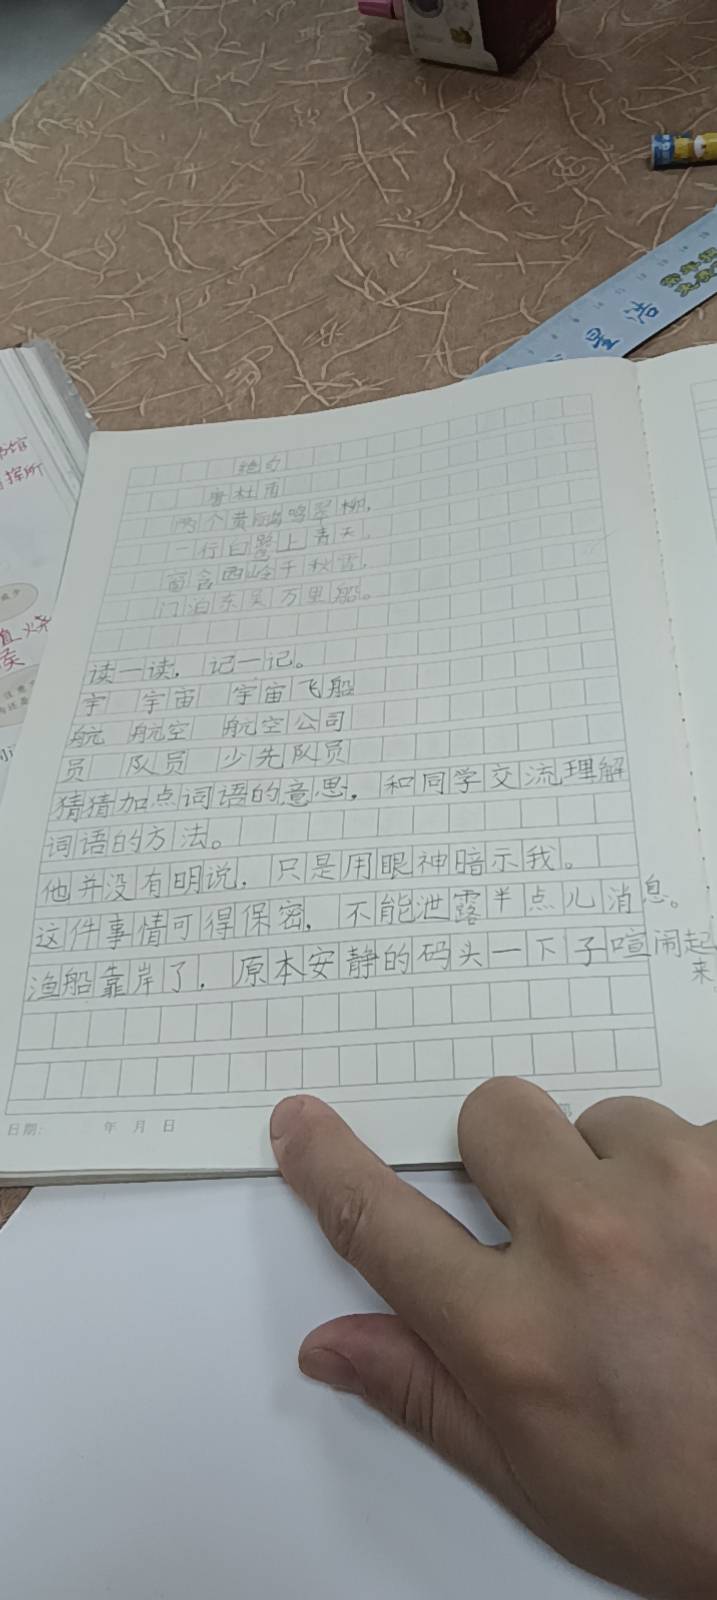 星浩
绝句
唐杜甫
两个黄鹂鸣翠柳，
一行白鹭上青天。
窗含西岭千秋雪，
门泊东吴万里船。
读一读，记一记。
宇 宇宙 宇宙飞船
航 航空 航空公司
员 队员 少先队员
猜猜加点词语的意思，和同学交流理解
词语的方法。
他并没有明说，只是用眼神暗示我。
这件事情可得保密，不能泄露半点儿消息。
渔船靠岸了，原本安静的码头一下子喧闹起
来
日期: 年 月 日